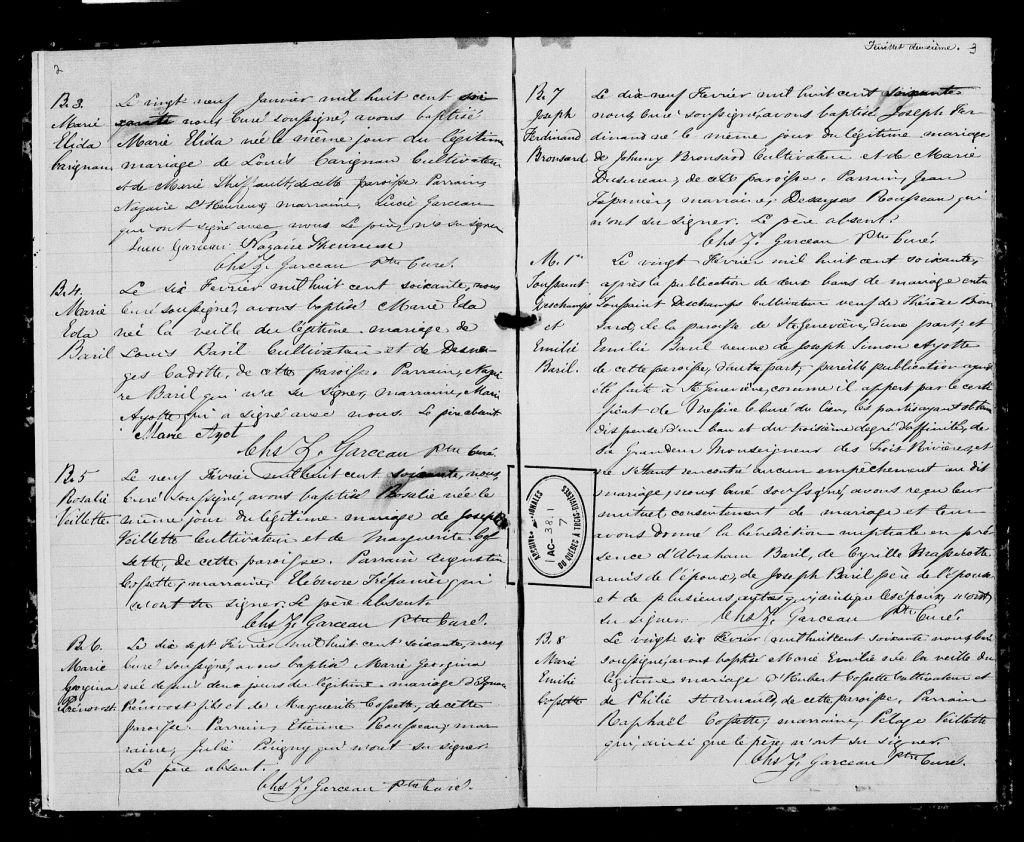 2
B. 3.
Marie
Elida
Carignan
Le vingt neuf Janvier mil huit cent soi
xante nous Curé soussigné, avons baptisé
Marie Elida née le même jour du légitime
mariage de Louis Carignan Cultivateur
et de Marie Thiffault, de cette paroisse. Parrain,
Nazaire L'Heureux, marraine, Lucie Garceau
qui ont signé avec nous. Le père, n'a su signer
Lucie Garceau Nazaire Lheureux
Chs Z. Garceau Ptre Curé.
B. 4.
Marie
Eda
Baril
Le six Fevrier mil huit cent soixante, nous
Curé soussigné, avons baptisé Marie Eda
née la veille du légitime mariage de
Louis Baril Cultivateur et de Desne-
ges Cadotte, de cette paroisse. Parrain, Nazai
re Baril qui n'a su signer, marraine, Marie
Ayotte qui a signé avec nous. Le père absent
Marie Ayot
Chs Z. Garceau Ptre Curé.
B. 5
Rosalie
Veillette
Le neuf Février mil huit cent soixante, nous,
Curé soussigné, avons baptisé Rosalie née le
même jour du légitime mariage de Joseph
Veillette Cultivateur et de Marguerite Cos
sette, de cette paroisse. Parrain Augustin
Cossette, marraine, Eléonore Trépanier qui
n'ont su signer. Le père absent.
Chs Z. Garceau Ptre Curé.
B. 6.
Marie
Georgina
Prénovost
Le dix sept Février mil huit cent soixante, nous
Curé soussigné, avons baptisé Marie Georgina
née depuis deux jours du légitime mariage d'
Prénovost fils et de Marguerite Cossette, de cette
paroisse. Parrain, Etienne Rousseau, mar
raine, Julie Périgny qui n'ont su signer
Le père absent.
Chs Z. Garceau Ptre Curé.
Feuillet deuxième. 3
B. 7
Joseph
Ferdinand
Bronsard
Le dix neuf Fevrier mil huit cent soixante
nous Curé soussigné, avons baptisé Joseph Fer
dinand né le même jour du légitime mariage
de Johnny Bronsard Cultivateur et de Marie
de cette paroisse. Parrain, Jean
Trépanier, marraine, Rousseau qui
n'ont su signer. Le père absent.
Chs Z. Garceau Ptre Curé.
M. 1er
Toussaint
Deschamps
et
Emilie
Baril.
Le vingt Février mil huit cent soixante,
après la publication de deux bans de mariage entre
Toussaint Deschamps Cultivateur veuf de Thérèse Bron
sard, de la paroisse de Ste Geneviève, d'une part; et
Emilie Baril veuve de Joseph Simon Ayotte
de cette paroisse, d'autre part; pareille publication ayant
été faite à Ste Geneviève, comme il appert par le certi
ficat de Messire le Curé du lieu, les parties ayant obtenu
dispense d'un ban et du troisième degré d'affinité, de
Sa Grandeur Monseigneur des Trois Rivières, et
ne s'étant rencontré aucun empêchement au dit
mariage, nous Curé soussigné, avons reçu leur
mutuel consentement de mariage et leur
avons donné la bénédiction nuptiale en pré
sence d'Abraham Baril, de Cyrille Massicotte
amis de l'époux, de Joseph Baril père de l'épouse
et de plusieurs autres qui, ainsi que les époux, n'ont
su signer. Chs Z. Garceau Ptre Curé.
B. 8
Marie
Emilie
Cossette
Le vingt six Février mil huit cent soixante nous Curé
soussigné, avons baptisé Marie Emilie née la veille du
légitime mariage d'Hubert Cossette Cultivateur et
de Philie St Arnauld, de cette paroisse. Parrain
Raphaël Cossette, marraine, Pélagie Veillette
qui, ainsi que le père, n'ont su signer.
Chs Z. Garceau Ptre Curé.
ARCHIVES NATIONALES
AC-38.1
7
DU QUÉBEC À TROIS-RIVIÈRES